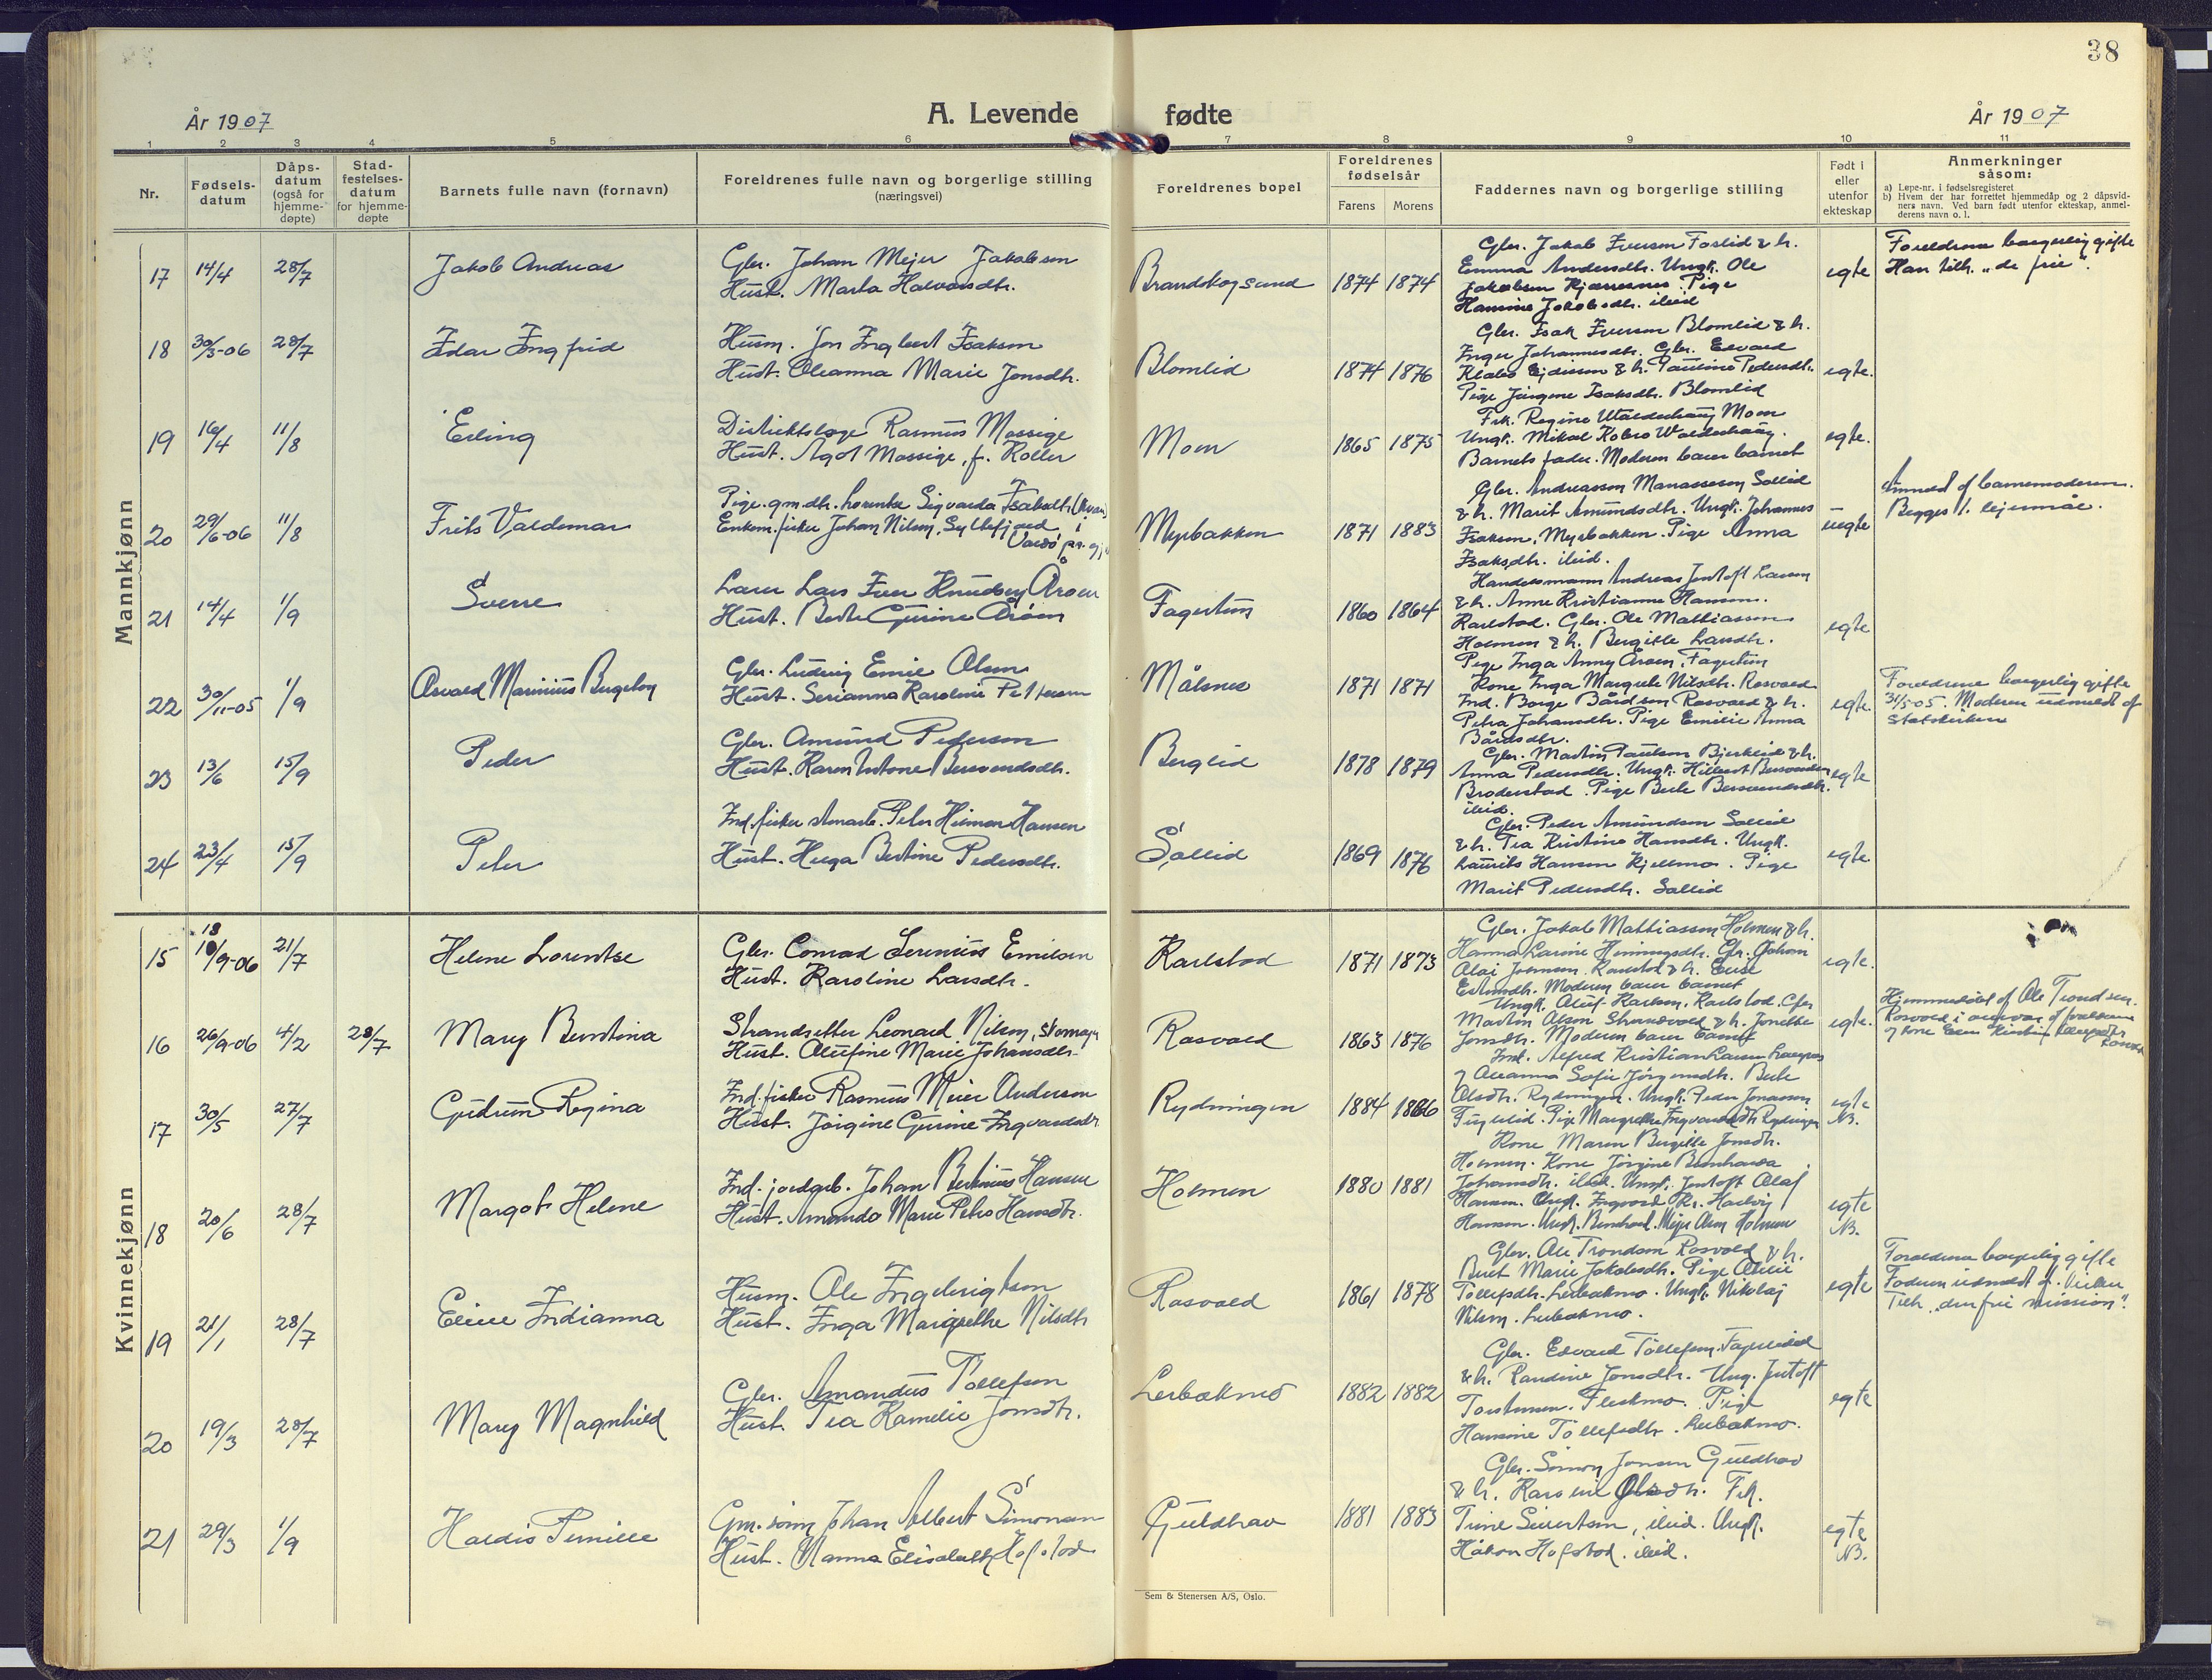 38
År 1907
A. Levende fødte
År 1907
1 2 3 4 5 6 7 8 9 10 11
Nr.
Fødsels-
datum
Dåps-
datum
(også for
hjemme-
døpte)
Stad-
festelses-
datum
for hjemme-
døpte
Barnets fulle navn (fornavn)
Foreldrenes fulle navn og borgerlige stilling
(næringsvei)
Foreldrenes bopel
Foreldrenes
fødselsår
Farens
Morens
Faddernes navn og borgerlige stilling
Født i
eller
utenfor
ekteskap
Anmerkninger
såsom:
a) Løpe-nr. i fødselsregisteret
b) Hvem der har forrettet hjemmedåp og 2 dåpsvid-
ners navn. Ved barn født utenfor ekteskap, anmel-
derens navn o. l.
Mannkjønn
17 14/4 28/7 Jakob Andreas
Gbr. Johan Mejer Jakobsen
Hust. Marta Halvorsdtr.
Brandskogsund 1874 1874
Gbr. Jakob Iversen Foslid & h.
Emma Andersdtr. Ungk. Ole
Jakobsen Kjærresnes. Pige
Hansine Jakobsdtr. ibid
egte
Foreldrene borgerlig gifte
Han tilh. "de frie".
18 30/3-06 28/7 Idar Ingfrid
Husm. Jon Ingbert Isaksen
Hust. Oleanna Marie Jonsdtr.
Blomlid 1874 1876
Gbr. Isak Iversen Blomlid & h.
Inger Johannesdtr. Gbr. Edvard
Klabo Ejdissen & h. Pauline Pedersdtr.
Pige Jørgine Isaksdtr. Blomlid
egte.
19 16/4 11/8 Erling
Distriktslæge Rasmus Mossige
Hust. Agot Mossige, f. Koller
Moen 1865 1875
Frk. Regine Walderhaug Moen
Ungk. Mikal Kobro Walderhaug.
Barnets fader. Moderen barer barnet
egte.
20 29/6-06 11/8 Frits Valdemar
Pige. gm.dtr. Lorentse Sigvarda Isaksdtr.
Enkem. fisker Johan Nilsen, Syltefjord i
Vardø
Myrbakken 1871 1883
Gbr. Andreassen Manassesen Sollid
& h. Marit Amundsdtr. Ungk. Johannes
Isaksen, Myrbakken. Pige Anna
Isaksdtr. ibid.
uegte
Anmeldt af barnemoderen.
Begges 1. lejermål.
21 14/4 1/9 Sverre
Lærer Lars Iver Knudsen Åroen
Hust. Berte Gurine Åroen
Fagertun 1860 1864
Handelsmann Andreas Jentoft Larsen
& h. Anne Kristianne Hansen.
Karlstad. Gbr. Ole Mathiassen
Holmen & h. Bergitte Larsdtr.
Pige Inga Anny Aroen, Fagertun
egte
22 30/11-05 1/9 Asvald Marinius Bergeton
Gbr. Ludvig Emil Olsen
Hust. Serianna Karoline Pettersen
Målsnes 1871 1871
Kone Inga Margrete Nilsdtr. Rosvold
Ind. Borge Bårdsen Rosvold & h.
Petra Johansdtr. Pige Emilie Anna
Bårdsdtr.
egte
Foreldrene borgerlig gifte
31/5-05. Moderen udmeldt af
Statskirken
23 13/6 15/9 Peder
Gbr. Amund Pedersen
Hust. Karen Antone Bersvendsdtr.
Berglid 1878 1879
Gbr. Martin Paulsen Bjerkeid & h.
Anna Pedersdtr. Ungk. Hilbert Bersvendsen
Broderstad. Pige Berte Bersvendsdtr.
ibid.
egte
24 23/4 15/9 Peter
Ind. fisker Peter Hilmar Hansen
Hust. Helga Bertine Pedersdtr.
Sollid 1869 1876
Gbr. Peder Amundsen Sollid
& h. Tea Kristine Hansdtr. Ungk.
Laurits Hansen Kjellmo. Pige
Marit Pedersdtr. Sollid
egte
Kvinnekjønn
15 18/9-06 21/7 Helene Lorentse
Gbr. Conrad Serenius Emilsen
Hust. Karoline Larsdtr.
Karlstad 1871 1873
Gbr. Jakob Mathiassen Holmen & h.
Hanna Larine Henningsdtr. Gbr. Johan
Moderen barer barnet
egte.
16 26/9-06 4/2 28/7 Mary Berntina
Strandsitter Leonard Nilsen, Skomager
Hust. Olufine Marie Johansdtr.
Rosvold 1863 1876
Ungk. Oluf Karlsen, Karlstad. Gbr.
Martin Olsen Strandvold & h. Jonette
Jonsdtr. Moderen barer barnet
egte.
Hjemmedøbt af Ole Trondsen
17 30/5 27/7 Gudrun Regina
Ind. fisker Rasmus Meier Andersen
Hust. Jörgine Gurine Ingvardsdtr
Rydningen 1884 1886
Ind. Alfred Kristian Larsen
Oleanna Sofie Jörgensdtr. Berte
Olsdtr. Rydningen. Ungk. Peder Jonassen
Pige Margrethe Ingvardsdtr Rydningen
egte
N.
18 20/6 28/7 Margot Helene
Ind. jordarb. Johan Bertinius Hansen
Hust. Amanda Marie Petra Hansdtr.
Holmen 1880 1881
Kone Maren Bergitte Jonsdtr.
Holmen. Kone Jörgine Bernharda
Johansdtr. ibid. Ungk. Jentoft Olaf
Hansen. Ungk. Ingvard Kr. Hartvig
Hansen. Ungk. Bernhard Mejer Olsen Holmen
egte
N.
19 21/1 28/7 Eline Indianna
Husm. Ole Ingebrigtsen
Hust. Inga Margrethe Nilsdtr
Rosvold 1861 1878
Gbr. Ole Trondsen Rosvold & h.
Berit Marie Jakobsdtr. Pige Olive
Tollefsdtr. Lerbakmo. Ungk. Nikolaj
Nilsen. Lerbakmo.
egte
Foreldrene borgerlig gifte
Faderen udmeldt af Kirken
Tilh. "den frie mission".
20 19/3 28/7 Mary Magnhild
Gbr. Amandus Tollefsen
Hust. Tea Kamelie Jonsdtr.
Lerbakmo 1882 1882
Gbr. Edvard Tollefsen Fagerlid
& h. Pauline Jonsdtr. Ung. Jentoft
Torstensen. Fleskmo. Pige
Hansine Tollefsdtr. Lerbakmo.
egte
21 29/3 1/9 Haldis Pernille
Gm. søn Johan Albert Simonsen
Hust. Nanna Elisabeth Hofstad
Guldhav 1881 1883
Gbr. Simon Jensen Guldhav
& h. Karoline Olsdtr. Frk.
Trine Sivertsen, ibid. Ungk.
Håkon Hofstad. ibid.
egte
N.
Sem & Stenersen A/S, Oslo.